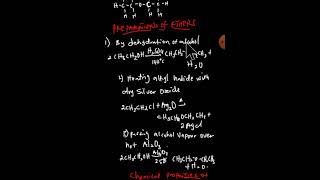 H-C-C-O-C-C-H
H H H H
PREPARATIONS OF ETHERS
1) By dehydration of alcohol
2CH3CH2OH H2SO4 CH3CH2 CH3 +
140°C H2O
2) Heating alkyl halide with
dry Silver Oxide
2CH3CH2Cl + Ag2O →
CH3CH2OCH2CH3 +
2AgCl
3) passing alcohol vapour over
hot Al2O3
2CH3CH2OH Al2O3 CH3CH2-O-CH2CH3
+ H2O
Chemical Properties of